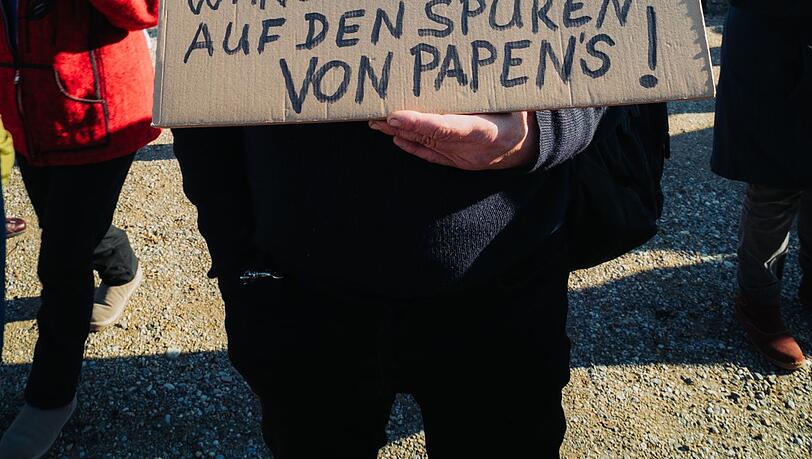 AUF DEN SPUREN
VON PAPEN'S !